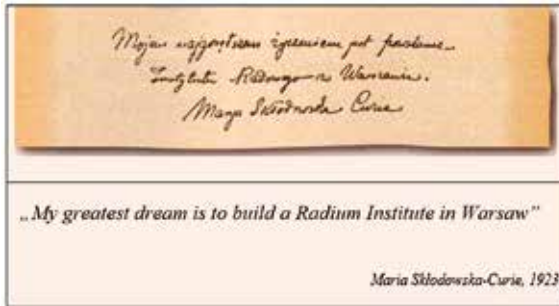 Mojem najgorętszem życzeniem jest powstanie
Instytutu Radowego w Warszawie.
Marja Skłodowska Curie
„My greatest dream is to build a Radium Institute in Warsaw”
Maria Skłodowska-Curie, 1923